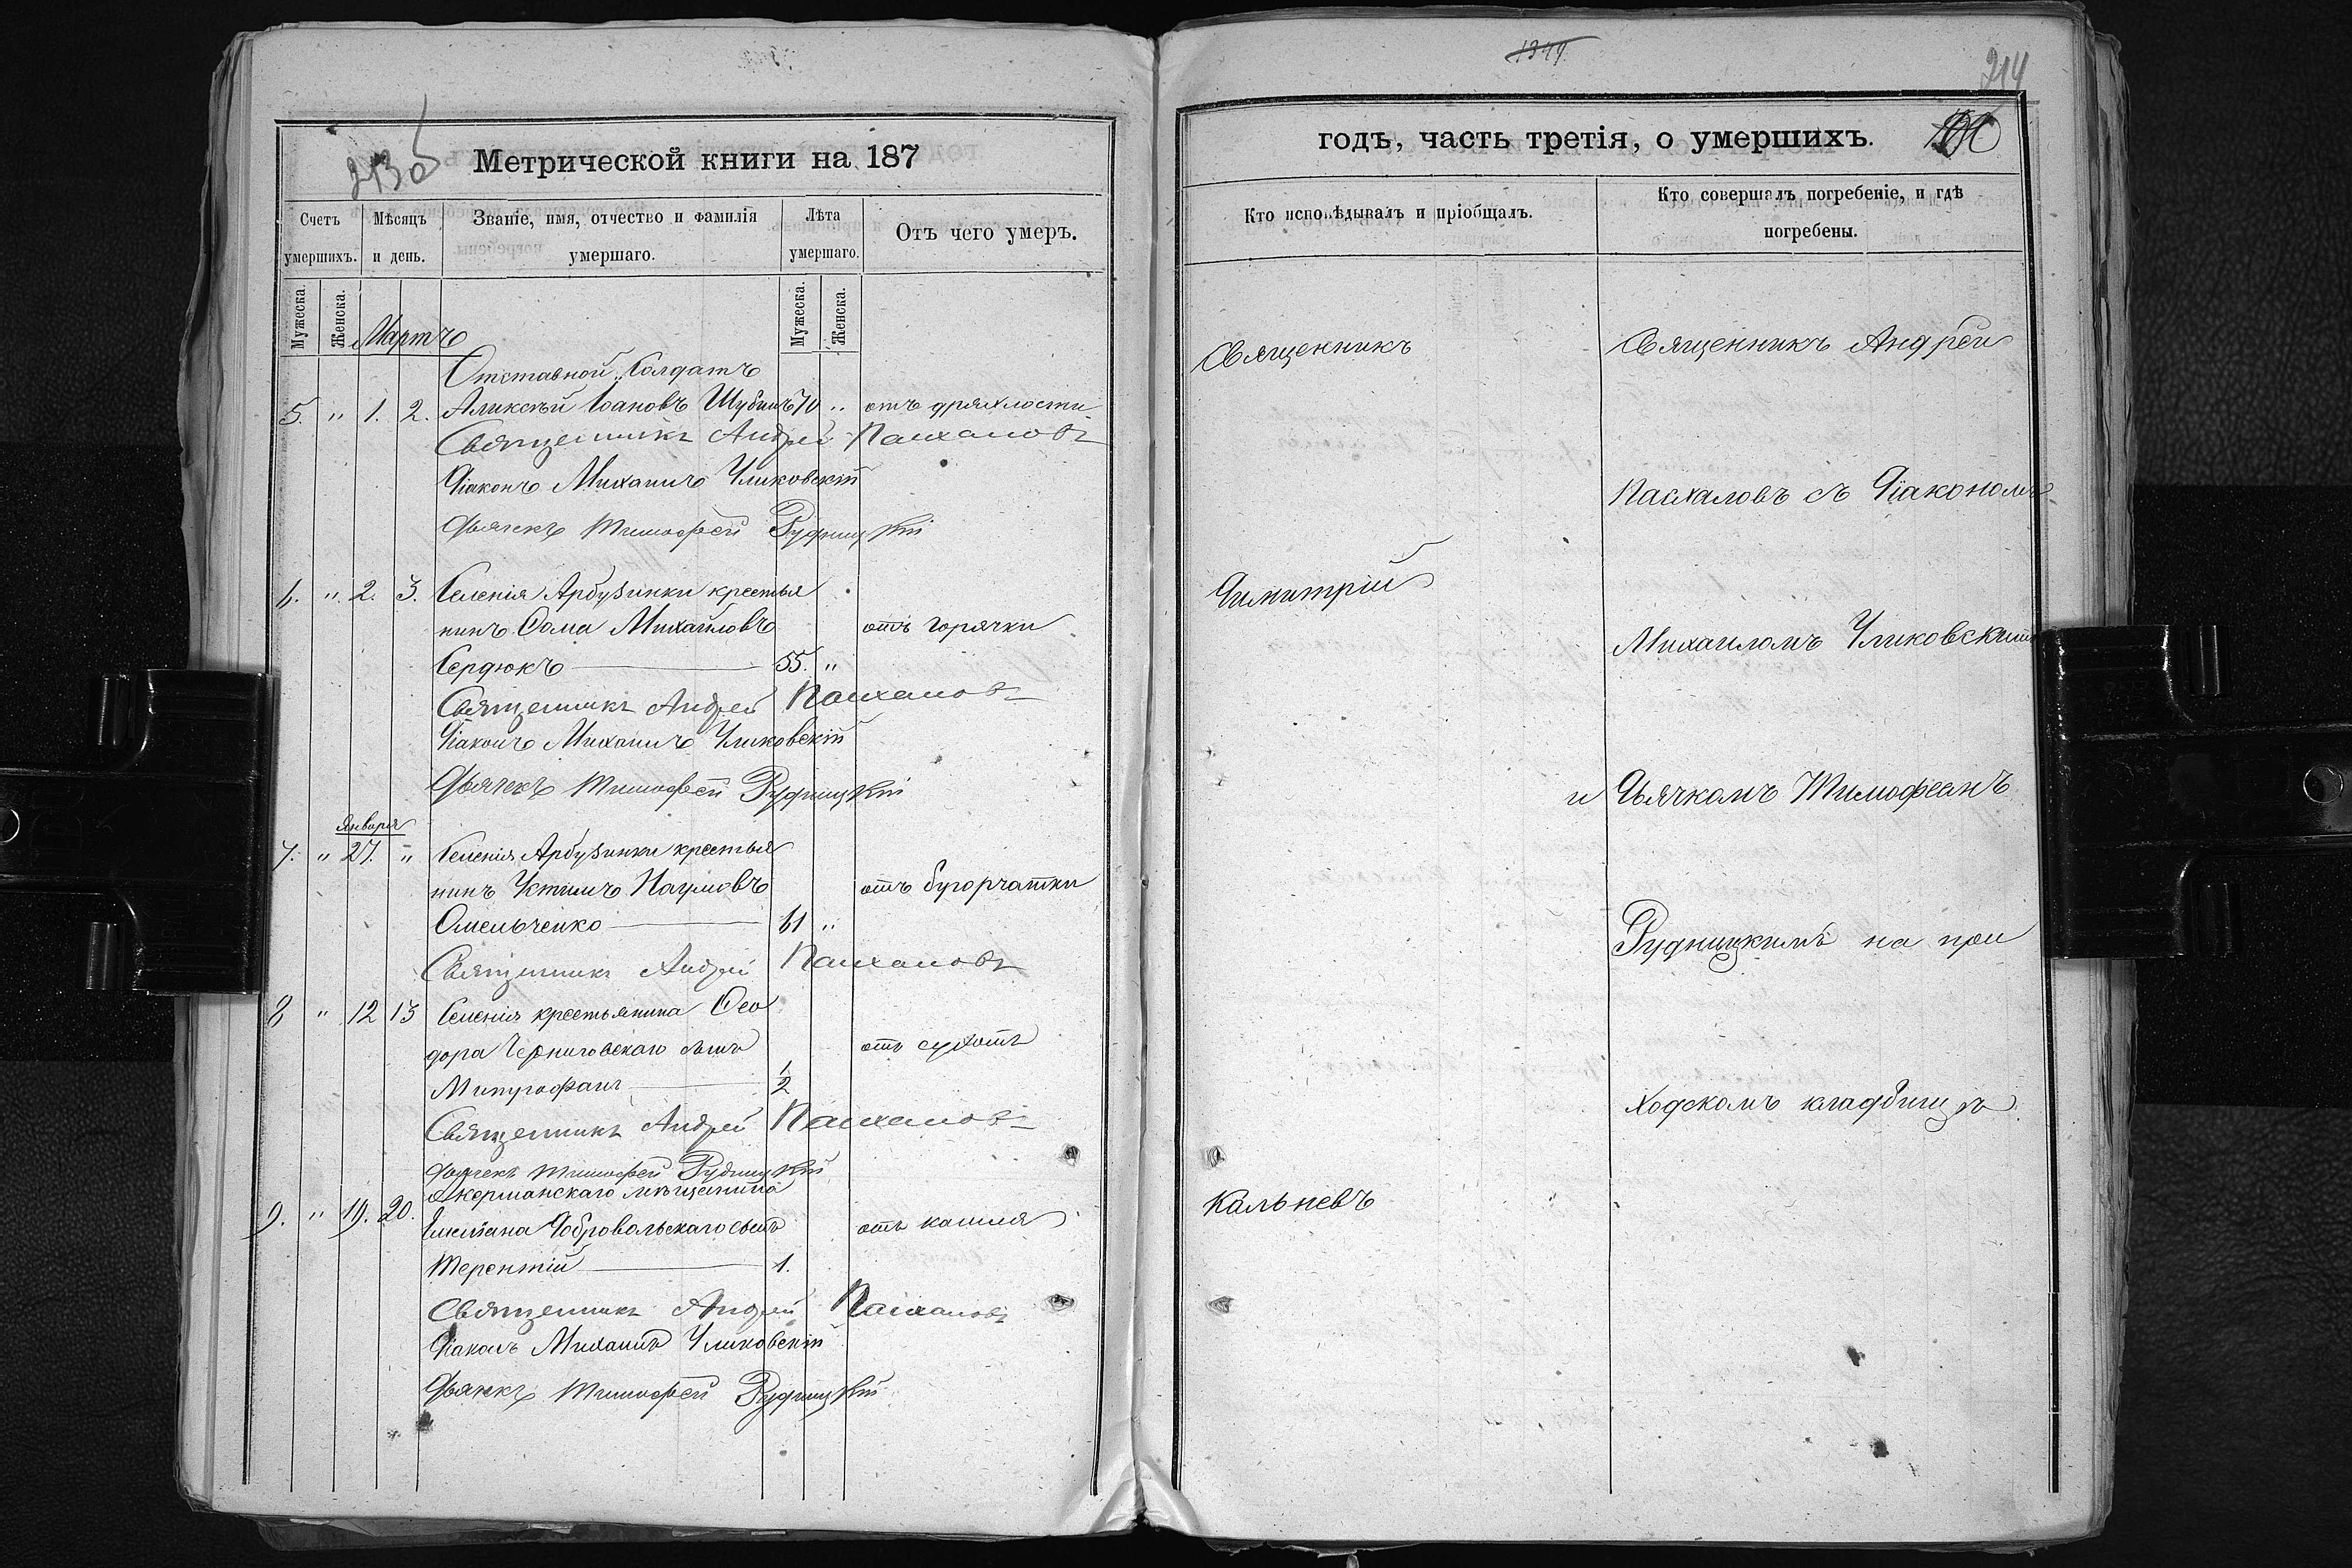 213 об
Метрической книги на 187
Счетъ умершихъ.
Мѣсяцъ и день.
Званіе, имя, отчество и фамилія умершаго.
Лѣта умершаго.
Отъ чего умеръ.
Мужеска.
Женска.
Мужеска.
Женска.
Мартъ
Отставной Солдатъ
5. " 1. 2. Аликсѣй Іоановъ Шубинъ 70 " отъ дряхлости
Священникъ Андрей Пасхаловъ
Діаконъ Михаилъ Уликовскій
Дьячекъ Тимофей Рудницкій
6. " 2. 3. Селенія Арбузинки крестья
нинъ Ѳома Михайловъ отъ горячки
Сердюкъ 55. "
Священникъ Андрей Пасхаловъ
Діаконъ Михаилъ Уликовскій
Дьячекъ Тимофей Рудницкій
Января
7. " 27. " Селенія Арбузинки крестья
нинъ Устимъ Наумовъ отъ бугорчатки
Омельченко 61 "
Священникъ Андрей Пасхаловъ
8 " 12 13 Селенія крестьянина Ѳео
дора Черниговскаго сынъ отъ сухотъ
Митрофанъ 1/2
Священникъ Андрей Пасхаловъ
Дьячекъ Тимофей Рудницкій
Акерманскаго мѣщанина
9. " 19. 20. Добровольскаго сынъ отъ кашля
Терентій 1.
Священникъ Андрей Пасхаловъ
Діаконъ Михаилъ Уликовскій
Дьячекъ Тимофей Рудницкій
214
годъ, часть третія, о умершихъ.
Кто исповѣдывалъ и пріобщалъ.
Кто совершалъ погребеніе, и гдѣ погребены.
Священникъ
Димитрій
Кальневъ
Священникъ Андрей
Пасхаловъ съ Діакономъ
Михаиломъ Уликовскимъ
и Дьячкомъ Тимофеемъ
Рудницкимъ на при
ходскомъ кладбищѣ